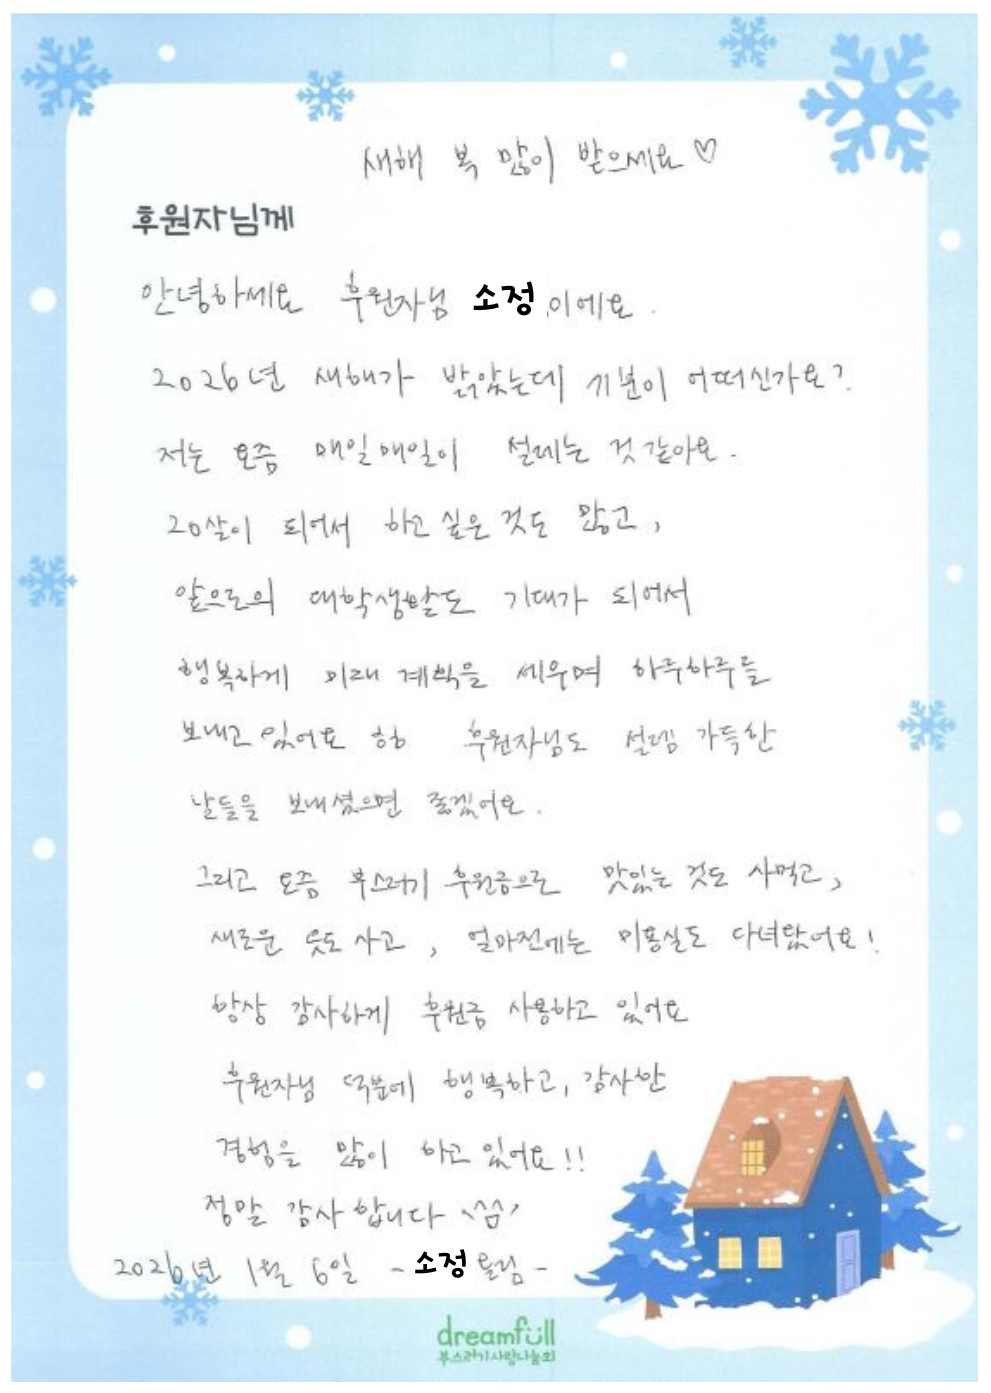 새해 복 많이 받으세요 ♡
후원자님께
안녕하세요 후원자님 소정이에요.
2026년 새해가 밝았는데 기분이 어떠신가요?
저는 요즘 매일매일이 설레는 것 같아요.
20살이 되어서 하고 싶은 것도 많고,
앞으로의 대학생활도 기대가 되어서
행복하게 미래 계획을 세우며 하루하루를
보내고 있어요 ㅎㅎ 후원자님도 설렘 가득한
날들을 보내셨으면 좋겠어요.
그리고 요즘 부스러기 후원금으로 맛있는 것도 사먹고,
새로운 옷도 사고, 얼마전에는 미용실도 다녀왔어요!
항상 감사하게 후원금 사용하고 있어요
후원자님 덕분에 행복하고, 감사한
경험을 많이 하고 있어요!!
정말 감사합니다 ^^
2026년 1월 6일 - 소정 올림 -
dreamfull
부스러기사랑나눔회